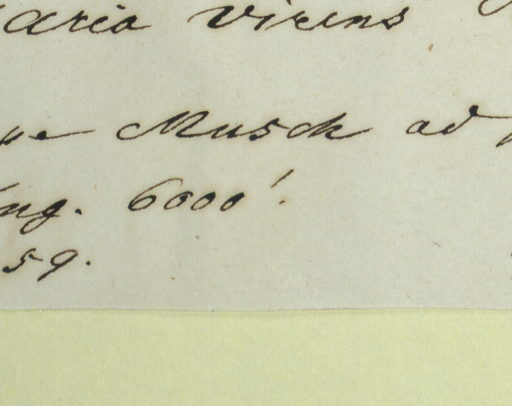 aria virens
pe Musch ad
ng. 6000'.
59.